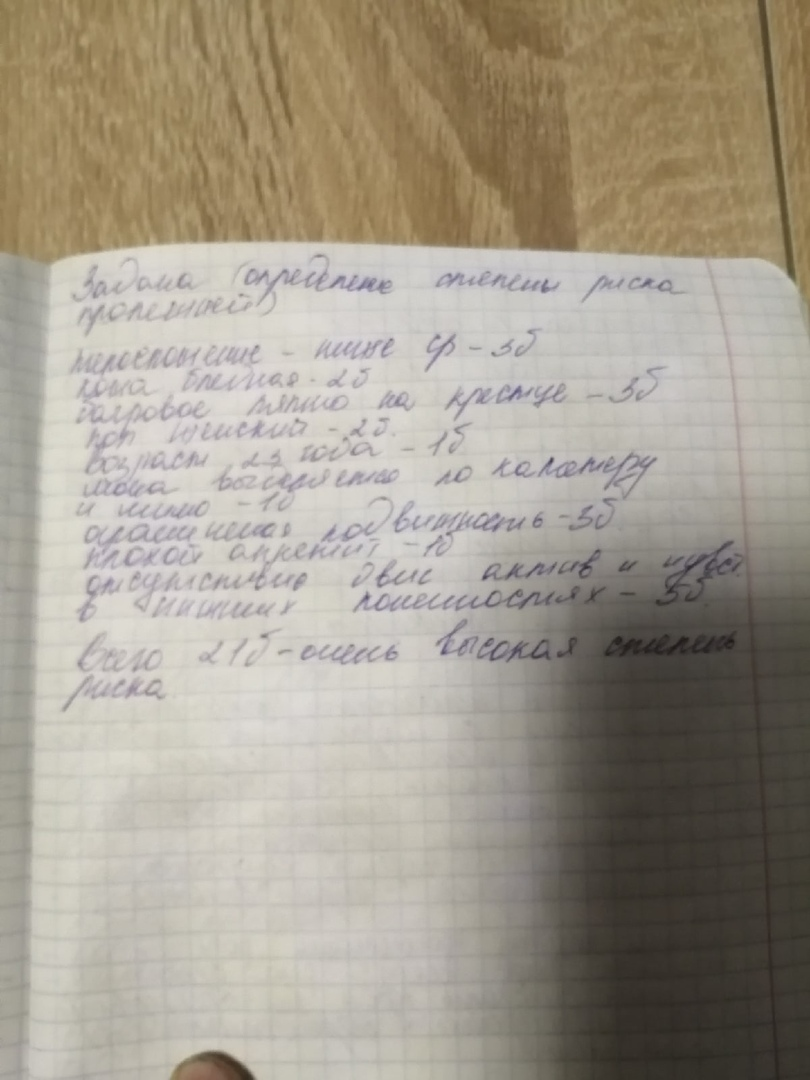 Задача (определение степени риска
пролежней)
телосложение - ниже ср - 3б
кожа бледная - 2б
багровое пятно на крестце - 3б
пол женский - 2б.
возраст 23 года - 1б
моча выделяется по катетеру
и мимо - 1б
ограниченая подвижность - 3б
плохой аппетит - 1б
отсутствие двиг актив и чувст.
в нижних конечностях - 5б.
Всего 21б - очень высокая степень
риска